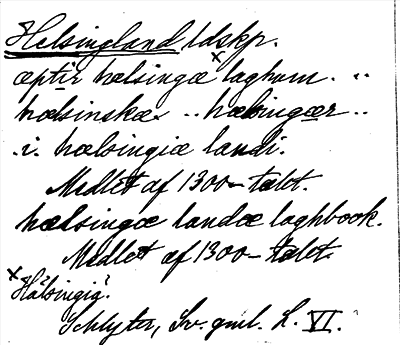 Helsingland ldskp.
æptir hælsingæ x laghum. ..
hælsinskæ .. hælsingær ..
.i. hælsingiæ landi.
Medlet af 1300-talet.
hælsingæ landæ laghbook.
Medlet af 1300-talet.
x "Hälsingia".
Schlyter, Sv. gml. L. VI.